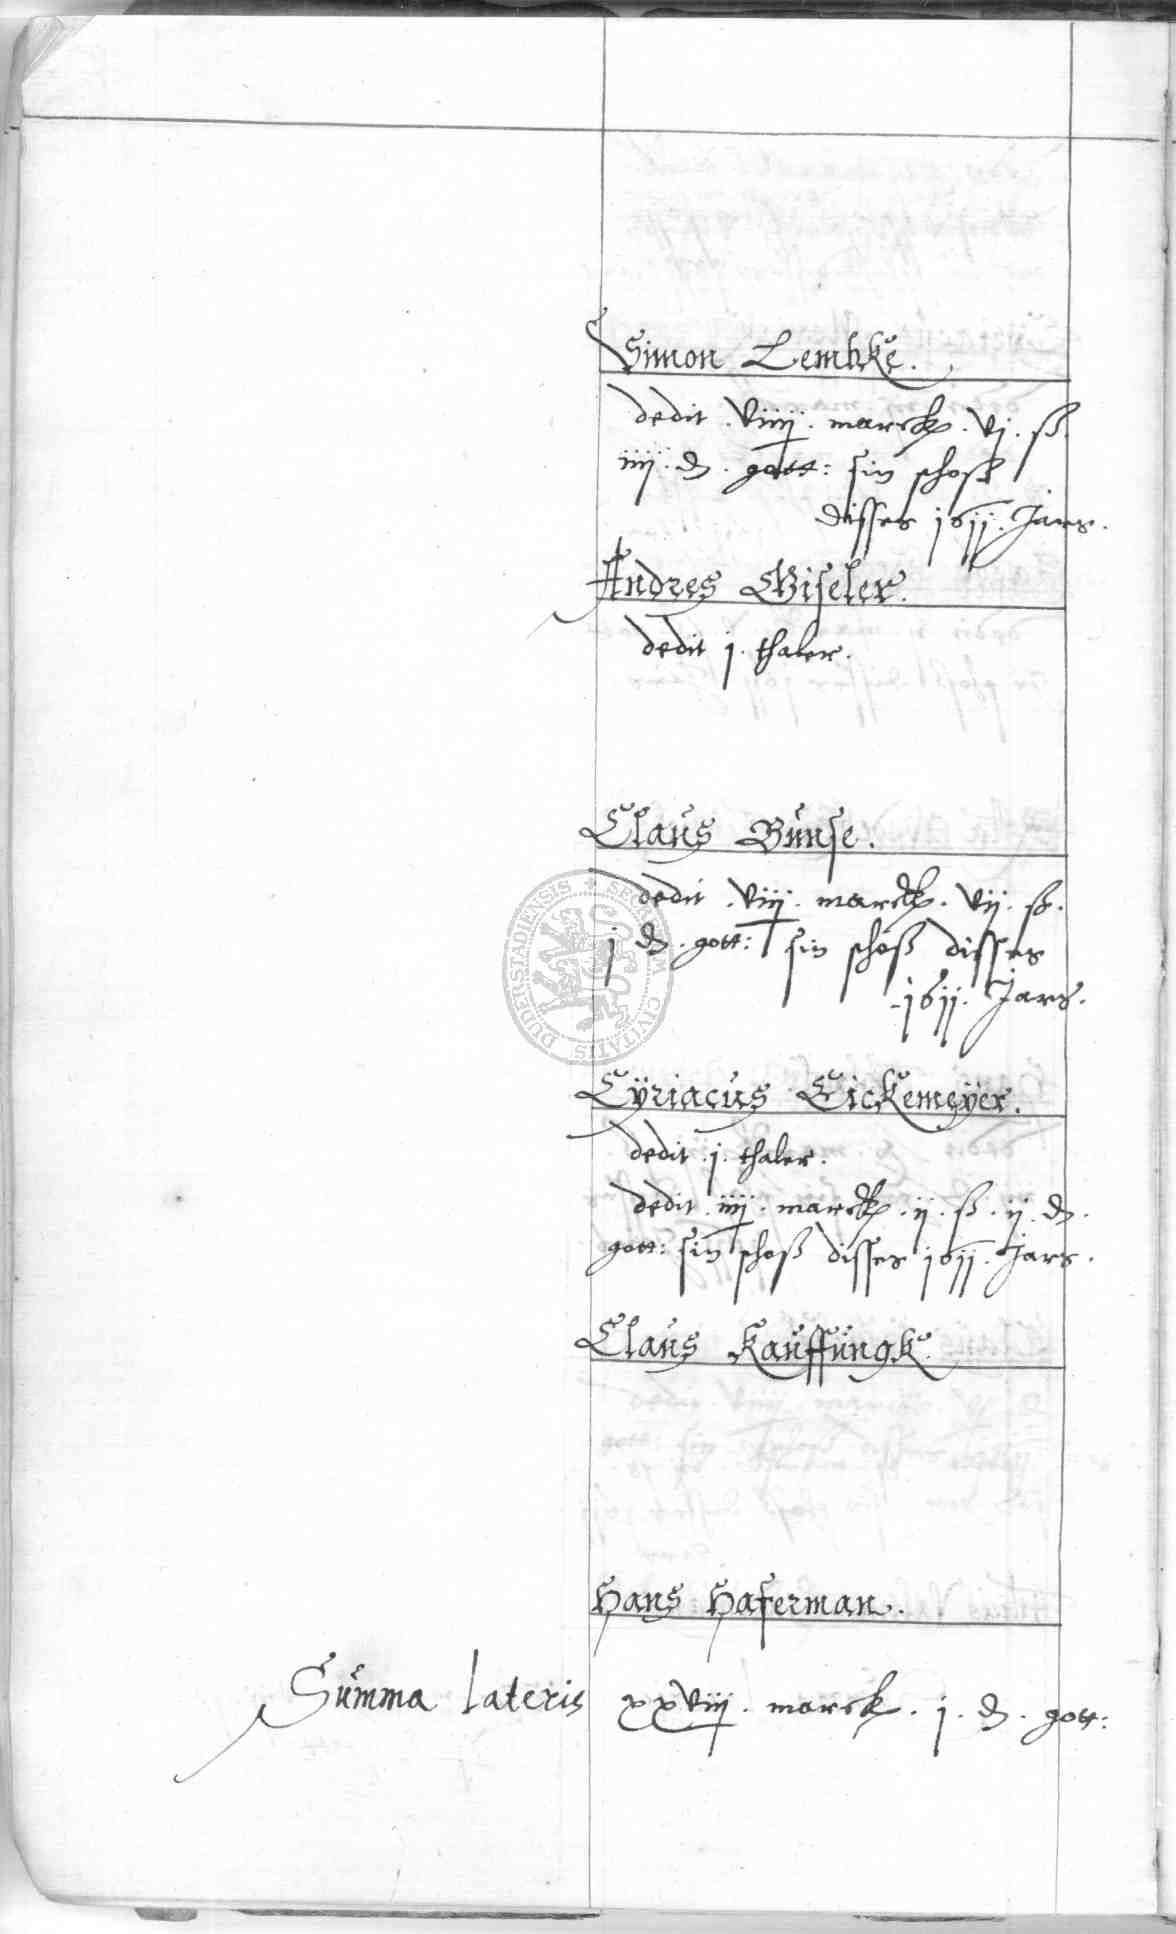 Simon Lembke.
dedit . viiij . marck . vj . ß .
iiij . d . gott: sin schoß
disses 1611. Jars.
Andres Giseler.
dedit j. thaler.
Claus Bunse.
dedit . viij . marck . vij . ß .
j d . gott: sin schoß disses
1611. Jars.
Cÿriacus Eickemeÿer.
dedit . j . thaler.
dedit . iiij . marck . ij . ß . ij . d .
gott: sin schoß disses 1611. Jars.
Claus Kauffungk.
Hans Haferman.
Summa lateris xxviij . marck . j . d . gott:
SECRETUM CIVITATIS DUDERSTADIENSIS